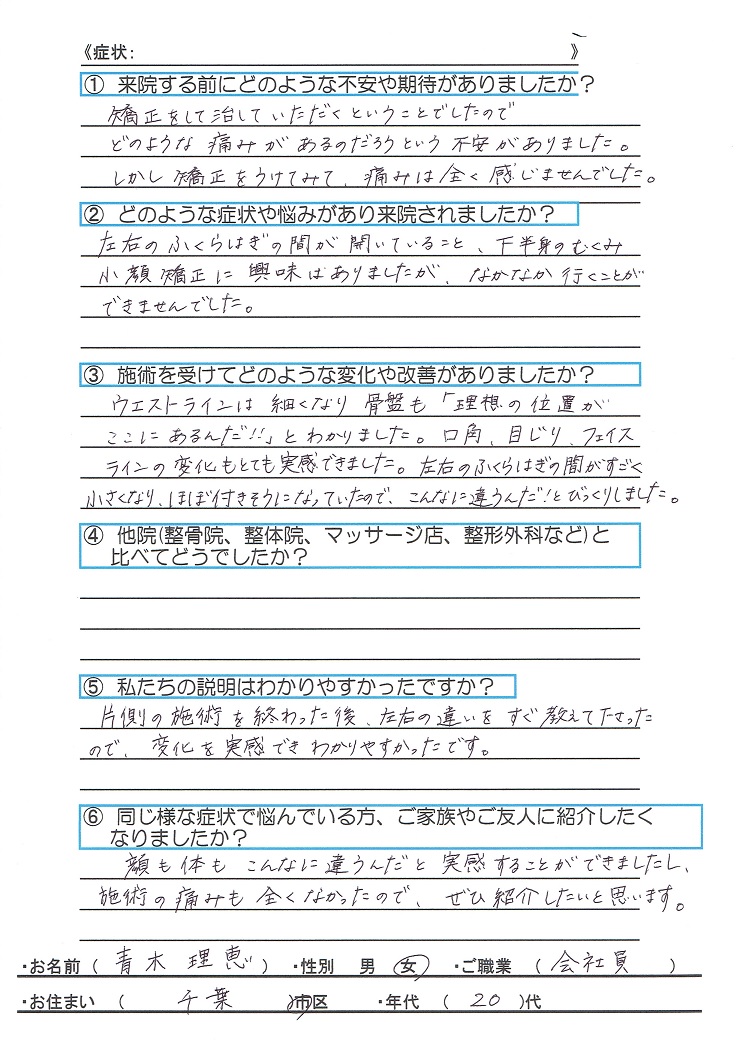 《症状: 》
① 来院する前にどのような不安や期待がありましたか？
矯正をして治していただくということでしたので
どのような 痛みが あるのだろうという 不安がありました。
しかし 矯正をうけてみて、痛みは全く感じませんでした。
② どのような症状や悩みがあり来院されましたか？
左右のふくらはぎの間が 開いていること、下半身のむくみ
小顔矯正に 興味はありましたが、なかなか 行くことが
できませんでした。
③ 施術を受けてどのような変化や改善がありましたか？
ウエストラインは 細くなり 骨盤も「理想の位置が
ここに あるんだ!!」と わかりました。口角、目じり、フェイス
ラインの 変化もとても実感できました。左右のふくらはぎの間がすごく
小さくなり、ほぼ付きそうになっていたので、こんなに違うんだ!とびっくりしました。
④ 他院(整骨院、整体院、マッサージ店、整形外科など)と
比べてどうでしたか？
⑤ 私たちの説明はわかりやすかったですか？
片側の施術を終わった後、左右の違いをすぐ教えて下さった
ので、変化を実感でき わかりやすかったです。
⑥ 同じ様な症状で悩んでいる方、ご家族やご友人に紹介したく
なりましたか？
顔も体も こんなに違うんだと 実感することができましたし、
施術の痛みも 全くなかったので、ぜひ紹介したいと思います。
・お名前 （ 青木 理恵 ） ・性別 男 女 ・ご職業 （ 会社員 ）
・お住まい （ 千葉 市区 ・年代 （ 20 ）代